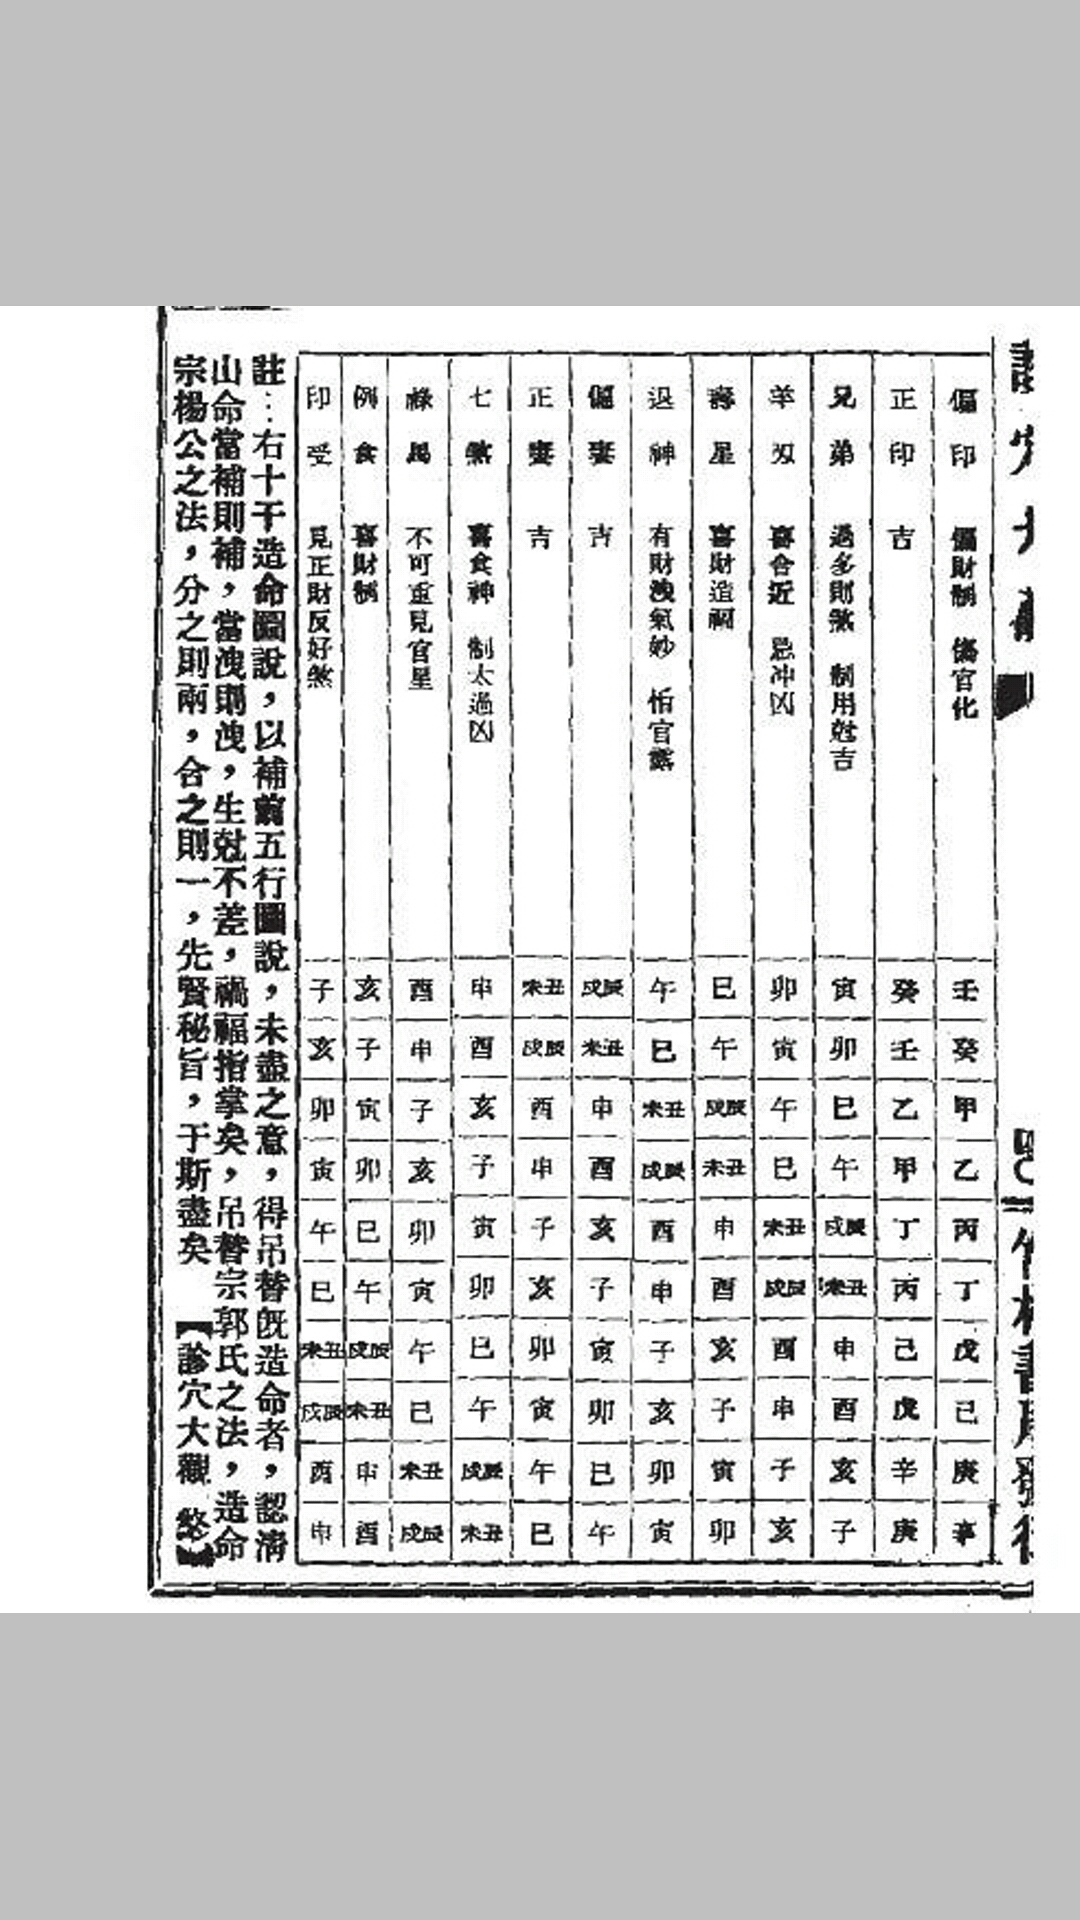 四〇 竹林書局發行
偏印 偏財制 傷官化 壬 癸 甲 乙 丙 丁 戊 己 庚 辛
正印 吉 癸 壬 乙 甲 丁 丙 己 戊 辛 庚
兄弟 過多則煞 制用尅吉 寅 卯 巳 午 戌辰 未丑 申 酉 亥 子
羊刃 喜合近 忌冲凶 卯 寅 午 巳 未丑 戌辰 酉 申 子 亥
壽星 喜財造福 巳 午 戌辰 未丑 申 酉 亥 子 寅 卯
退神 有財洩氣妙 怕官露 午 巳 未丑 戌辰 酉 申 子 亥 卯 寅
偏妻 吉 戌辰 未丑 申 酉 亥 子 寅 卯 巳 午
正妻 吉 未丑 戌辰 酉 申 子 亥 卯 寅 午 巳
七煞 喜食神 制太過凶 申 酉 亥 子 寅 卯 巳 午 戌辰 未丑
祿馬 不可重見官星 酉 申 子 亥 卯 寅 午 巳 未丑 戌辰
例食 喜財制 亥 子 寅 卯 巳 午 戌辰 未丑 申 酉
印受 見正財反好煞 子 亥 卯 寅 午 巳 未丑 戌辰 酉 申
註：右十干造命圖說，以補前五行圖說，未盡之意，得吊替既造命者，認清
山命當補則補，當洩則洩，生尅不差，禍福指掌矣，吊替宗郭氏之法，造命
宗楊公之法，分之則兩，合之則一，先賢秘旨，于斯盡矣 【診穴大觀 終】